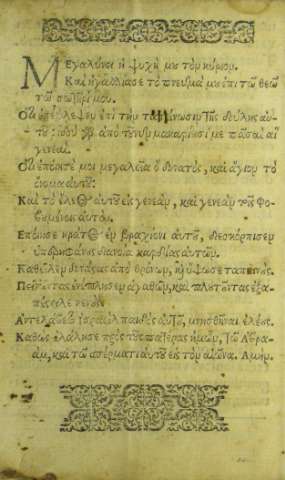 Μεγαλύνει ἡ ψυχή μου τὸν κύριον.
Καὶ ἠγαλλίασε τὸ πνεῦμά μου ἐπὶ τῷ θεῷ
τῷ σωτῆρί μου.
Ὅτι ἐπέβλεψεν ἐπὶ τὴν ταπείνωσιν τῆς δούλης αὐ-
τοῦ· ἰδοὺ γὰρ ἀπὸ τοῦ νῦν μακαριοῦσί με πᾶσαι αἱ
γενεαί.
Ὅτι ἐποίησέ μοι μεγαλεῖα ὁ δυνατός, καὶ ἅγιον τὸ
ὄνομα αὐτοῦ.
Καὶ τὸ ἔλεος αὐτοῦ εἰς γενεὰν, καὶ γενεὰν τοῖς φο-
βουμένοις αὐτόν.
Ἐποίησε κράτος ἐν βραχίονι αὐτοῦ, διεσκόρπισεν
ὑπερηφάνους διανοίᾳ καρδίας αὐτῶν.
Καθεῖλεν δυνάστας ἀπὸ θρόνων, καὶ ὕψωσε ταπεινούς.
Πεινῶντας ἐνέπλησεν ἀγαθῶν, καὶ πλουτοῦντας ἐξα-
πέστειλε κενούς.
Ἀντελάβετο ἰσραὴλ παιδὸς αὐτοῦ, μνησθῆναι ἐλέους.
Καθὼς ἐλάλησε πρὸς τοὺς πατέρας ἡμῶν, τῷ Ἀβρα-
ὰμ, καὶ τῷ σπέρματι αὐτοῦ εἰς τὸν αἰῶνα. Ἀμήν.